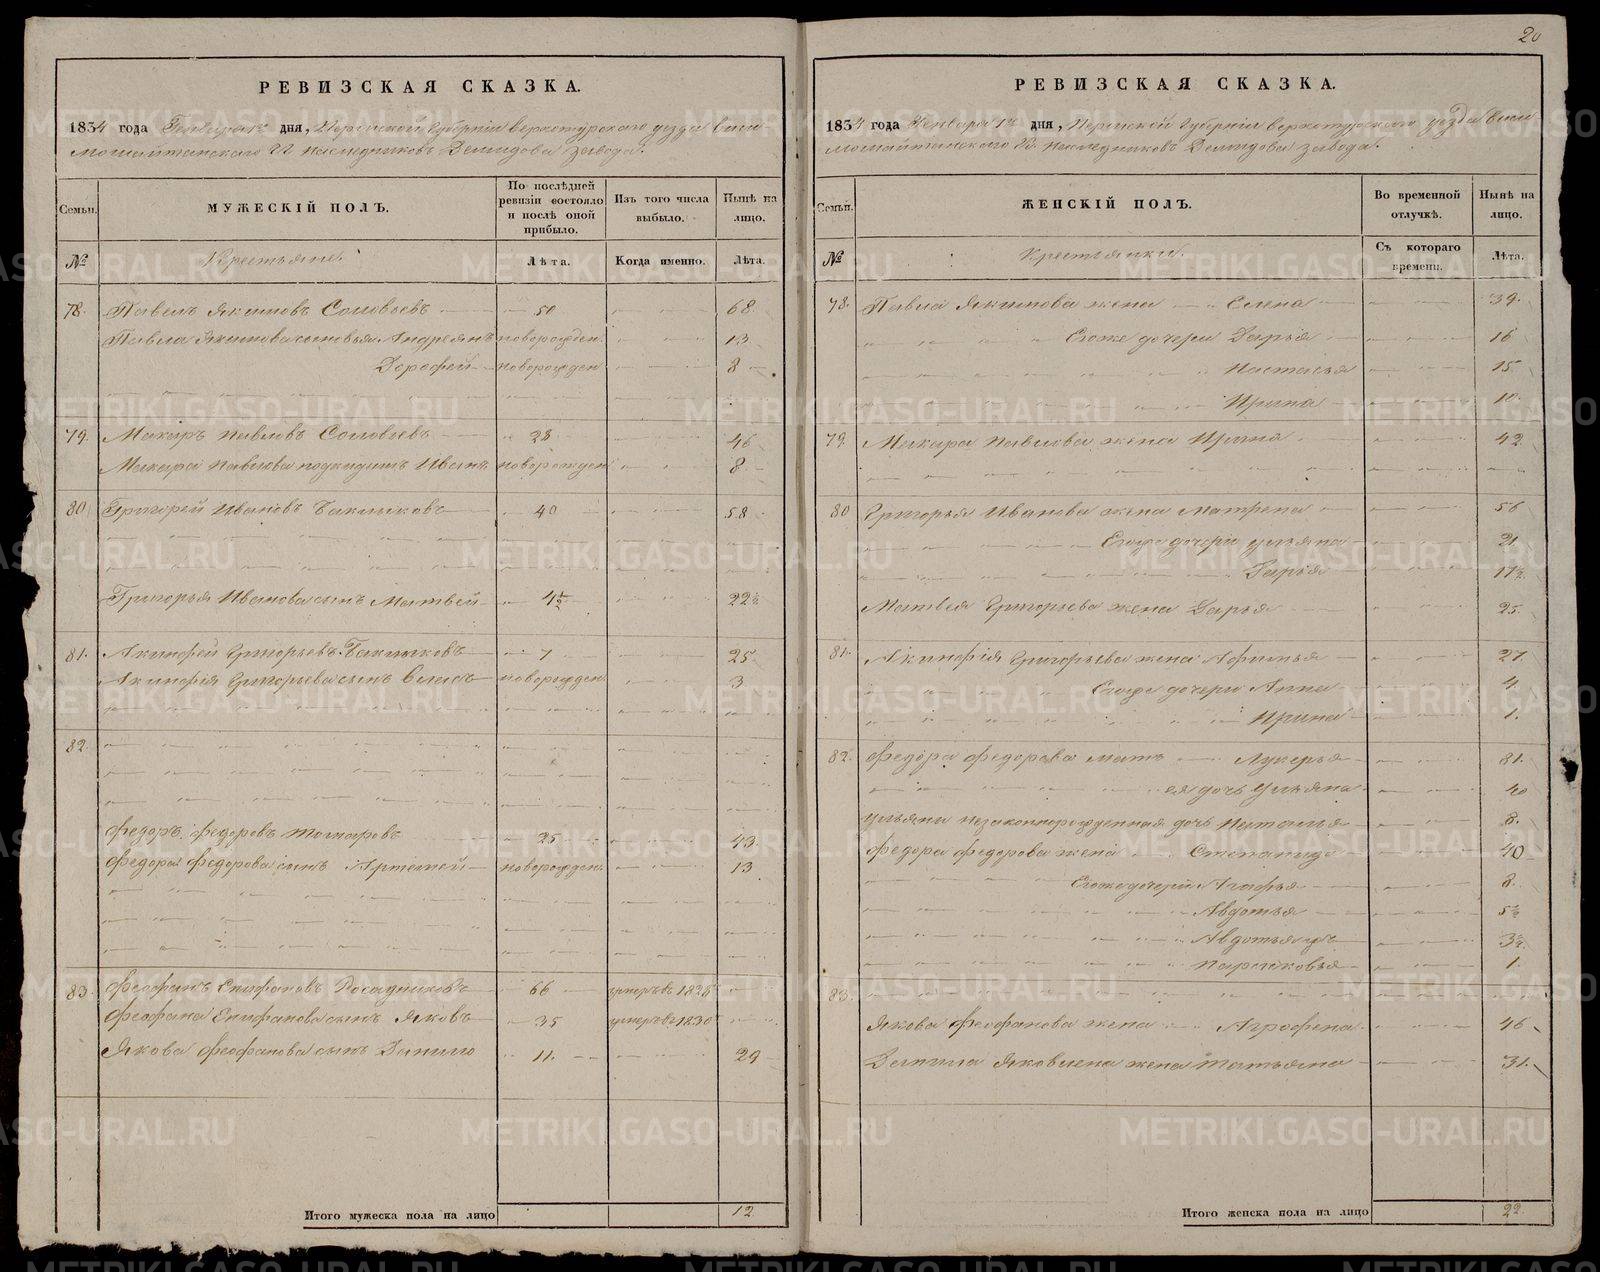 РЕВИЗСКАЯ СКАЗКА.
1834 года Генваря 1го дня, Пермской Губернiи верхотурскаго уезда вы
мошайтанскаго ГГ наследниковъ Демидова завода.
Семьи.
МУЖЕСКIЙ ПОЛЪ.
По послѣдней ревизiи состояло и послѣ оной прибыло.
Изъ того числа выбыло.
Нынѣ на лицо.
№
Крестьяне.
Лѣта.
Когда именно.
Лѣта.
78. Павелъ Якимовъ Соловьевъ 50 68
Павла Якимова сыновья Андреянъ новорожден. 13
Дорофей новорожден 8
79. Макаръ Павловъ Соловьевъ 38 46
Макара Павлова подкидышъ Иванъ новорожден 8
80 Григорей Ивановъ Баклыковъ 40 58
Григорья Иванова сынъ Матвей 4½ 22½
81. Акинфей Григорьевъ Баклыковъ 7 25
Акинфiя Григорьева сынъ Власъ новорожден 3
82.
Федоръ Федоровъ 25 43
Федора Федорова сынъ Артемей новорожден. 13
83. Феофанъ Епифановъ Росадниковъ 66 умеръ въ 1828
Феофана Епифанова сынъ Яковъ 35 умеръ въ 1830
Якова Феофанова сынъ Данило 11. 29
Итого мужеска пола на лицо 12
20
РЕВИЗСКАЯ СКАЗКА.
1834 года Генваря 1го дня, Пермской Губернiи верхотурскаго уезда вы
мошайтанскаго ГГ. наследниковъ Демидова завода.
Семьи.
ЖЕНСКIЙ ПОЛЪ.
Во временной отлучкѣ.
Нынѣ на лицо.
№
Крестьянки.
Съ котораго времени.
Лѣта.
78. Павла Якимова жена Елена 39.
Егоже дочери Дарья 16
Настасья 15
Ирина 10.
79. Макара Павлова жена Ирина 42
80 Григорья Иванова жена Матрена 56
Егоже дочери Ульяна 21
Дарья 17½
Матвея Григорьева жена Дарья 25.
81. Акинфiя Григорьева жена Афимья 27
Егоже дочери Анна 4
Ирина 1.
82. Федора Федорова мать Лукерья 81.
ея дочь Ульяна 40
Ульяны незаконнорожденная дочь Наталья 8.
Федора Федорова жена Степанида 40
Егоже дочери Агафья 8.
Авдотья 5½
Авдотья 3½
Парасковья 1
83.
Якова Феофанова жена Агрофена 46
Данила Яковлева жена Татьяна 31.
Итого женска пола на лицо 22
METRIKI.GASO-URAL.RU